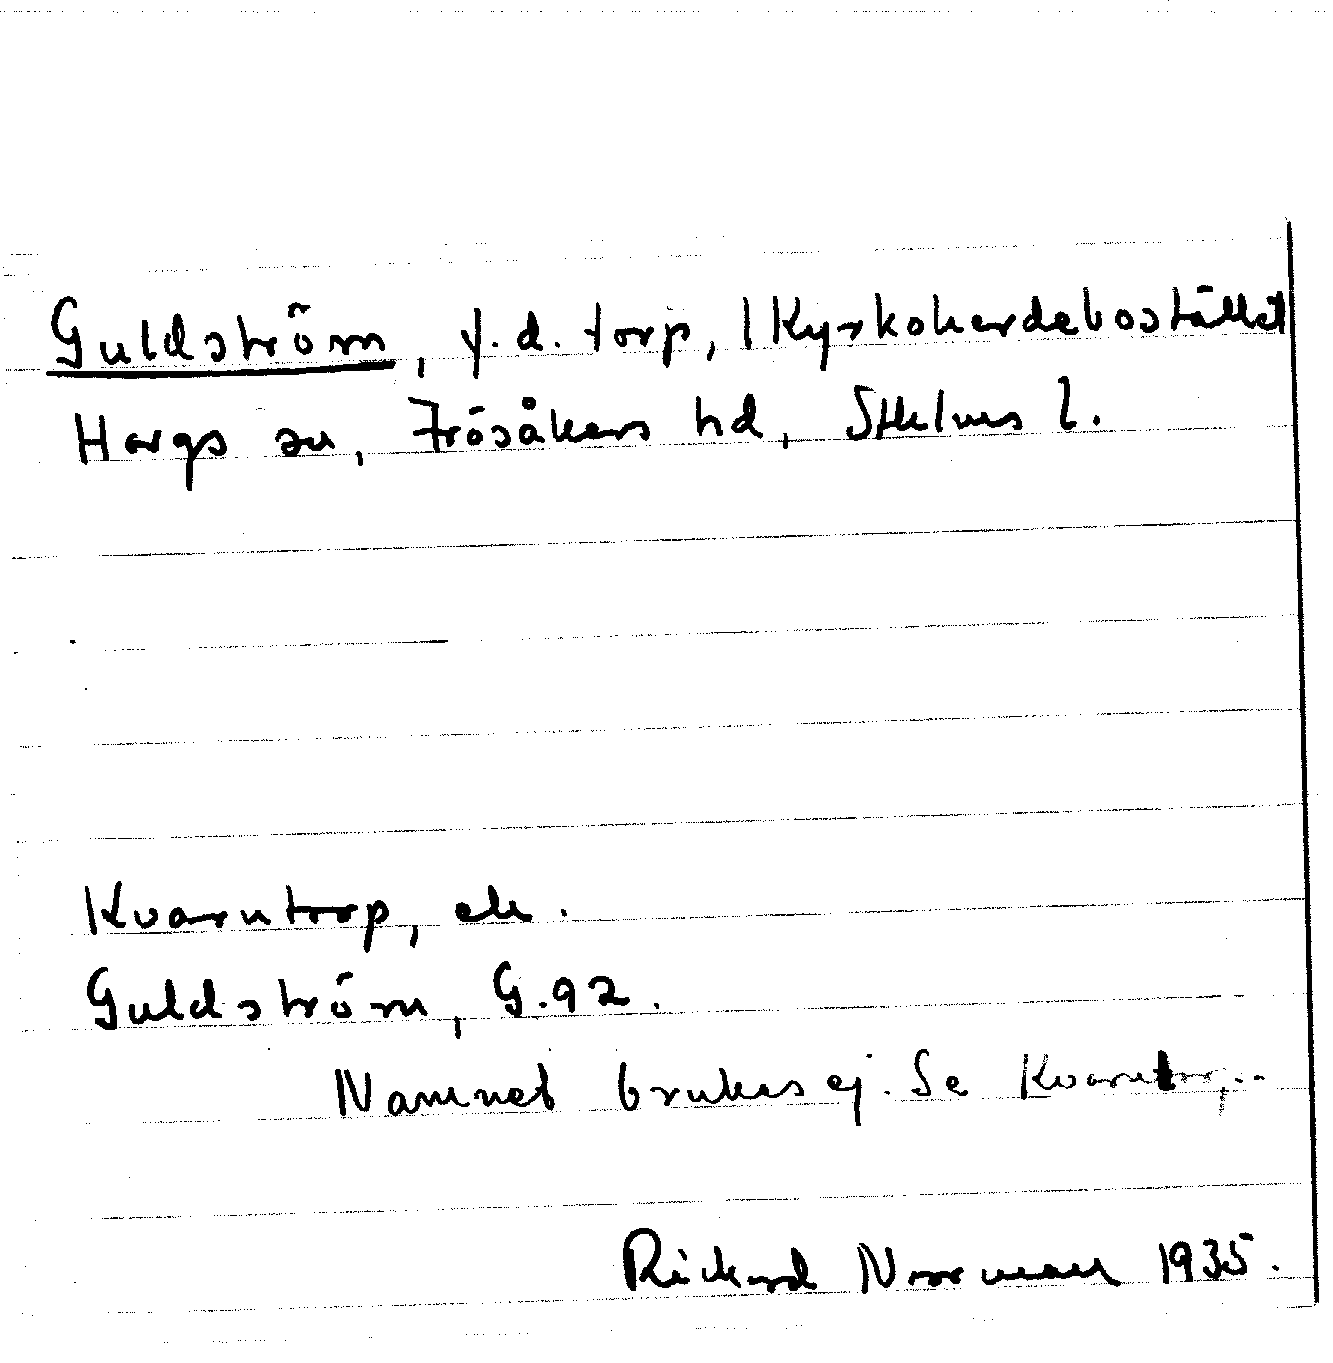 Guldström, f.d. torp, 1 Kyrkoherdebostället
Hargs sn, Frösåkers hd, Sthlms l.
Kvarntorp, ek.
Guldström, G. 92.
Namnet brukas ej. Se Kvarntorp.
Rickard Norrman 1935.